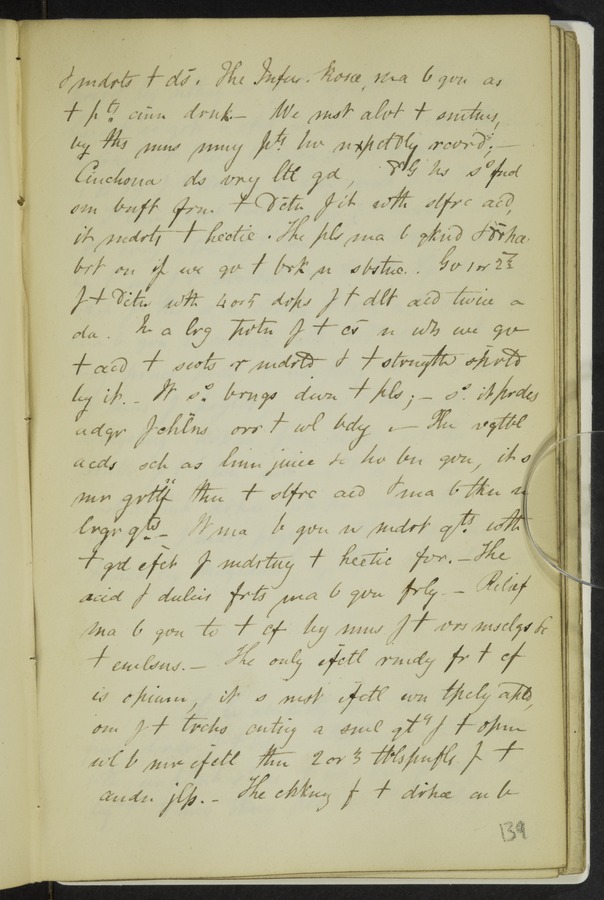 & mdrts + ds. The Infus. Rosæ, ma b gvn as
+ pts cmn drnk — We mst alvt + smtms,
by ths mns mny pts hv
Cinchona ds vry ltl gd, hs sd fnd
sm bnft frm + Dctn f it wth slfrc acd,
it mdrts + hectic. The pls ma b qknd & drhœa
brt on if we gv + brk n sbstnc. Gv 1 or 2 ℥
f + Dctn wth 4 or 5 drps f + dlt acd twice a
da. In a lrg prtn f + cs n wh we gv
+ acd + swts r mdrtd & + strength sprtd
by it. — It brngs dwn + pls; — it prdcs
a dgr f chlns ovr + wl bdy — Whn vgtbl
acds sch as lime juice &c hv bn gvn, it s
mr grtfl thn + slfrc acd & ma b tkn n
lrgr qts — It ma b gvn n mdrt qts wth
+ gd efct f mdrtng + hectic fvr. — The
acid & dulcis frts ma b gvn frly — Relief
ma b gvn to + cf by mns f + vrs mselgs &c
+ emlsns. — The only efctl rmdy fr + cf
is opium, it s mst efctl whn tpcly apld,
one f + trchs cntng a sml qty f + opm
wl b mr efctl thn 2 or 3 tblspnfls f +
jlp. — The chkng f + drhœ cn b
139